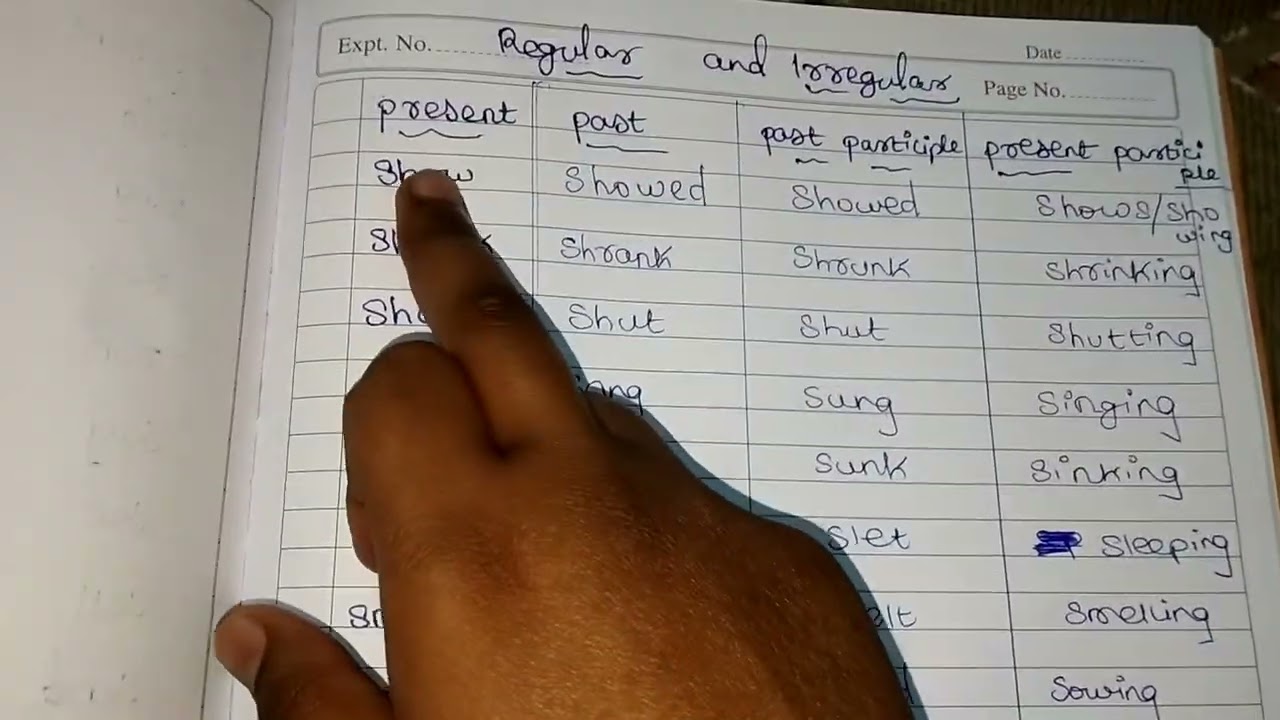 Expt. No. Regular and Irregular Date
Page No.
present past past participle present partici
ple
Show Showed Showed Shows/Sho
wing
Shrank Shrunk Shrinking
Shut Shut Shutting
Sung Singing
Sunk Sinking
Slet Sleeping
Smelling
Sowing